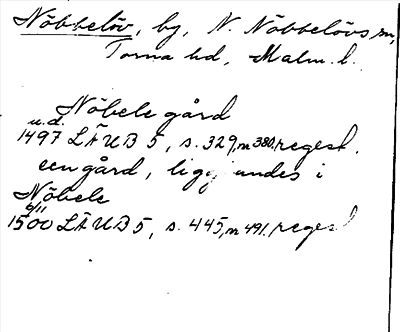 Nöbbelöv, by, N. Nöbbelövs sn,
Torna hd, Malm. l.
Nöbele gård
u.d.
1497 LÄUB 5, s. 329, n 380. regest.
een gård, liggiandes i
Nöbele
6/11
1500 LÄUB 5, s. 445, n 491. regest